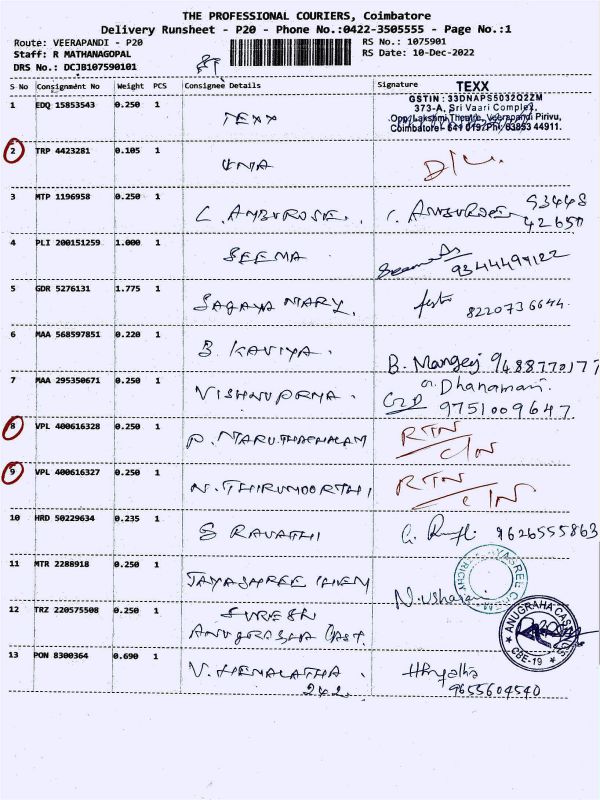 THE PROFESSIONAL COURIERS, Coimbatore
Delivery Runsheet - P20 - Phone No.:0422-3505555 - Page No.:1
Route: VEERAPANDI - P20
RS No.: 1075901
Staff: R MATHANAGOPAL
RS Date: 10-Dec-2022
DRS No.: DCJB107590101
S No Consignment No Weight PCS Consignee Details Signature
TEXX
GSTIN : 33DNAPS5032Q2ZM
373-A, Sri Vaari Complex,
Opp. Lakshmi Theatre, Veerapandi Pirivu,
Coimbatore - 641 019. Ph: 63853 44911.
1 EDQ 15853543 0.250 1 TEXX
2 TRP 4423281 0.105 1 UMA D/L
3 MTP 1196958 0.250 1 C. AMBUROSE. C. AMBUROSE 93448
42650
4 PLI 200151259 1.000 1 SEEMA
9344449122
5 GDR 5276131 1.775 1 SAGAYA MARY. 8220736644
6 MAA 568597851 0.220 1 B. KAVIYA. B. Mangej 9488770177
7 MAA 295350671 0.250 1 VISHNUPRIYA. Dhanamani
9751009647
8 VPL 400616328 0.250 1 P. MARUTHACHALAM RTN
C/N
9 VPL 400616327 0.250 1 N. THIRUMOORTHI RTN
C/N
10 HRD 50229634 0.235 1 G RAVATHI 9626555863
11 MTR 2288918 0.250 1 JAYASHREE CHEM N. usha
12 TRZ 220575508 0.250 1 SURESH
ANUGRAHA CAST.
ANUGRAHA CASTINGS
CBE-19
13 PON 8300364 0.690 1 V. HEMALATHA
242
9655604540